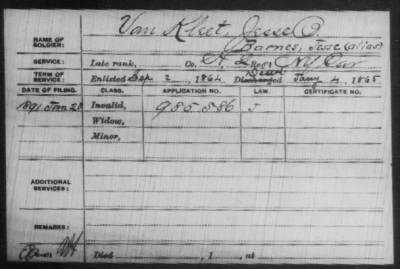 NAME OF SOLDIER: Van Kleet, Jesse O.
Barnes, Jesse (alias)
SERVICE: Late rank, Co. A, 2 Reg't NY Cav
TERM OF SERVICE: Enlisted Sep 2, 1864 Discharged Jany 4, 1865
DATE OF FILING. CLASS. APPLICATION NO. LAW. CERTIFICATE NO.
1891 Jan 28 Invalid, 985.586 J
Widow,
Minor,
ADDITIONAL SERVICES:
REMARKS:
Died , 1 , at